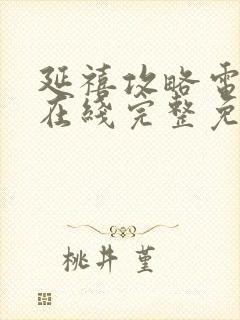 延禧攻略電
在綫完整免
桃井 堇